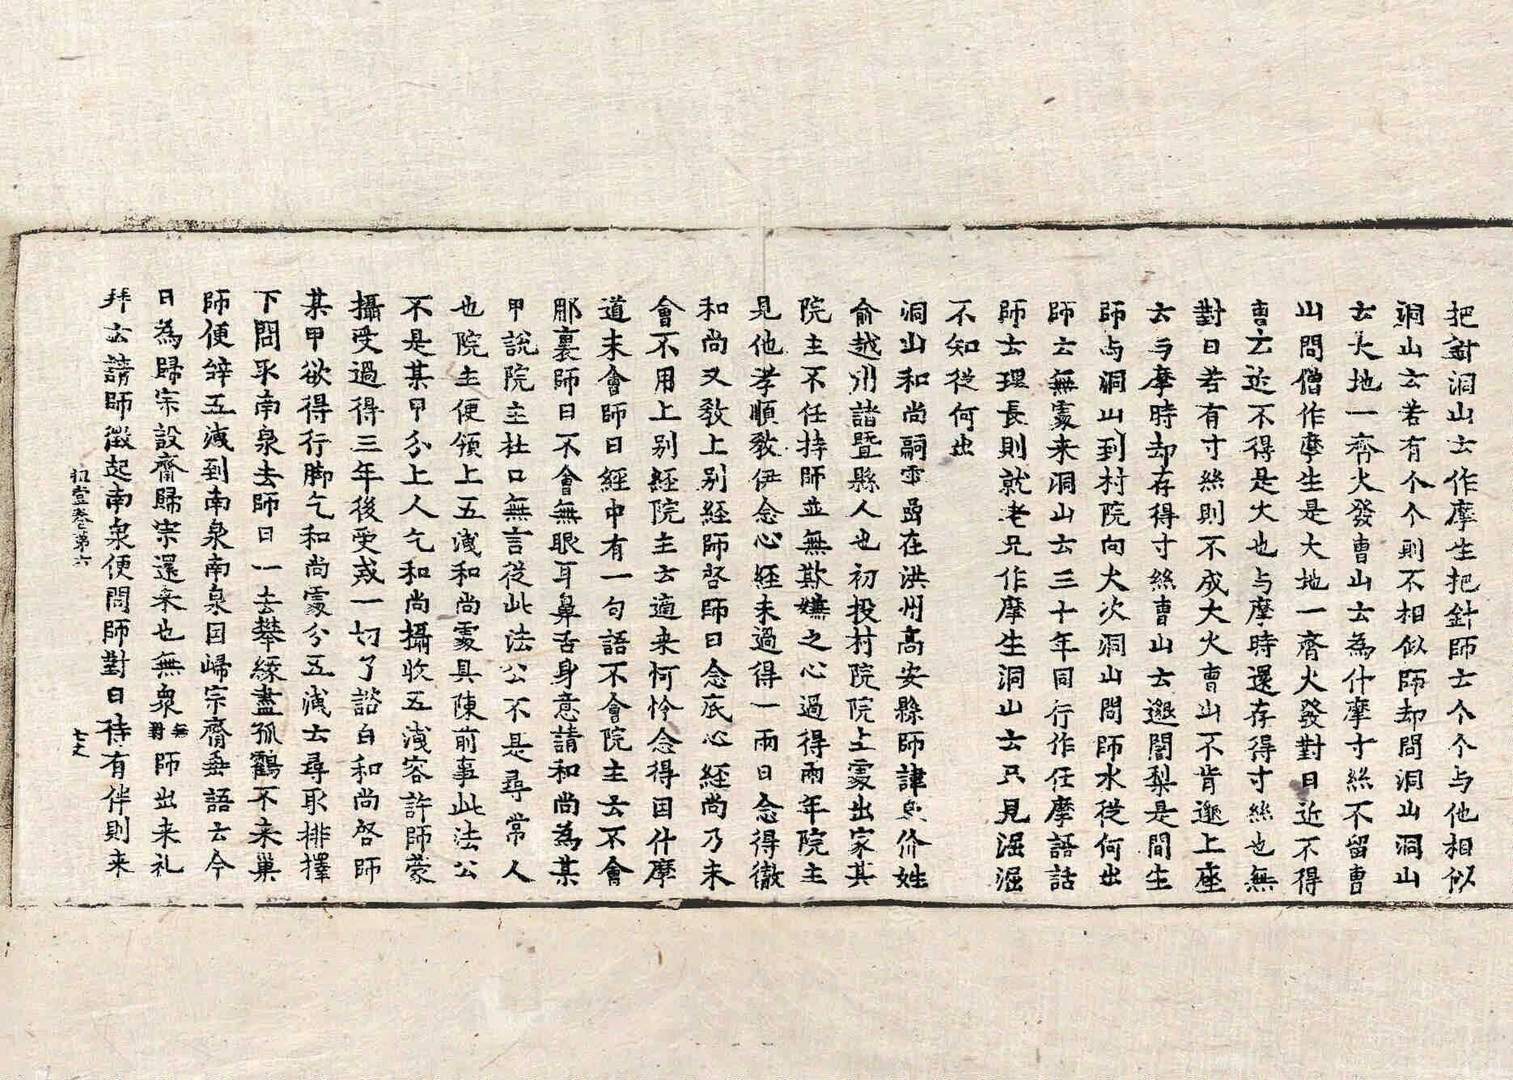 把針洞山云作摩生把針師云个个与他相似
洞山云若有个个則不相似師却問洞山洞山
云大地一齊火發曹山云為什摩寸絲不留曹
山問僧作摩生是大地一齊火發對曰近不得
曹云近不得是火也与摩時還存得寸絲也無
對曰若有寸絲則不成大火曹山不肯遂上座
云与摩時却存得寸絲曹山云遂闍梨是間生
師与洞山到村院向火次洞山問師水從何出
師云無處来洞山云三十年同行作任摩語話
師云理長則就老兄作摩生洞山云只見漞漞
不知從何出
洞山和尚嗣雲嵒在洪州高安縣師諱良价姓
俞越州諸暨縣人也初投村院院主處出家其
院主不任持師並無欺嫌之心過得兩年院主
見他孝順教伊念心經未過得一兩日念得徹
和尚又教上别經師啓師曰念底心經尚乃未
會不用上别經院主云適来可怜念得因什摩
道未會師曰經中有一句語不會院主云不會
那裏師曰不會無眼耳鼻舌身意請和尚為某
甲說院主杜口無言從此法公不是尋常人
也院主便領上五洩和尚處具陳前事此法公
不是某甲分上人乞和尚攝收五洩容許師蒙
攝受過得三年後受戒一切了諮白和尚啓師
某甲欲得行脚乞和尚處分五洩云尋取排擇
下問取南泉去師曰一去攀緣盡孤鶴不来巢
師便辞五洩到南泉南泉因歸宗齋垂語云今
日為歸宗設齋歸宗還来也無衆無對師出来礼
拜云請師徵起南泉便問師對曰待有伴則来
祖堂巻第六
七丈